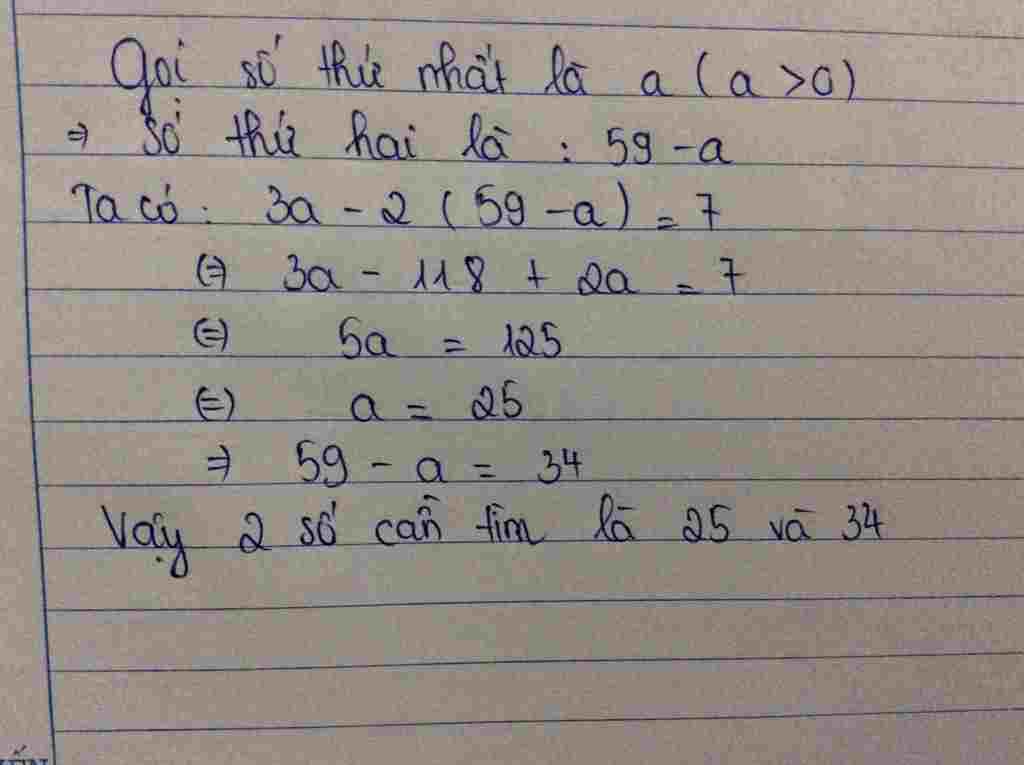 Gọi số thứ nhất là a (a >0)
⇒ Số thứ hai là : 59 - a
Ta có : 3a - 2 (59 - a) = 7
(=) 3a - 118 + 2a = 7
(=) 5a = 125
(=) a = 25
⇒ 59 - a = 34
Vậy 2 số cần tìm là 25 và 34